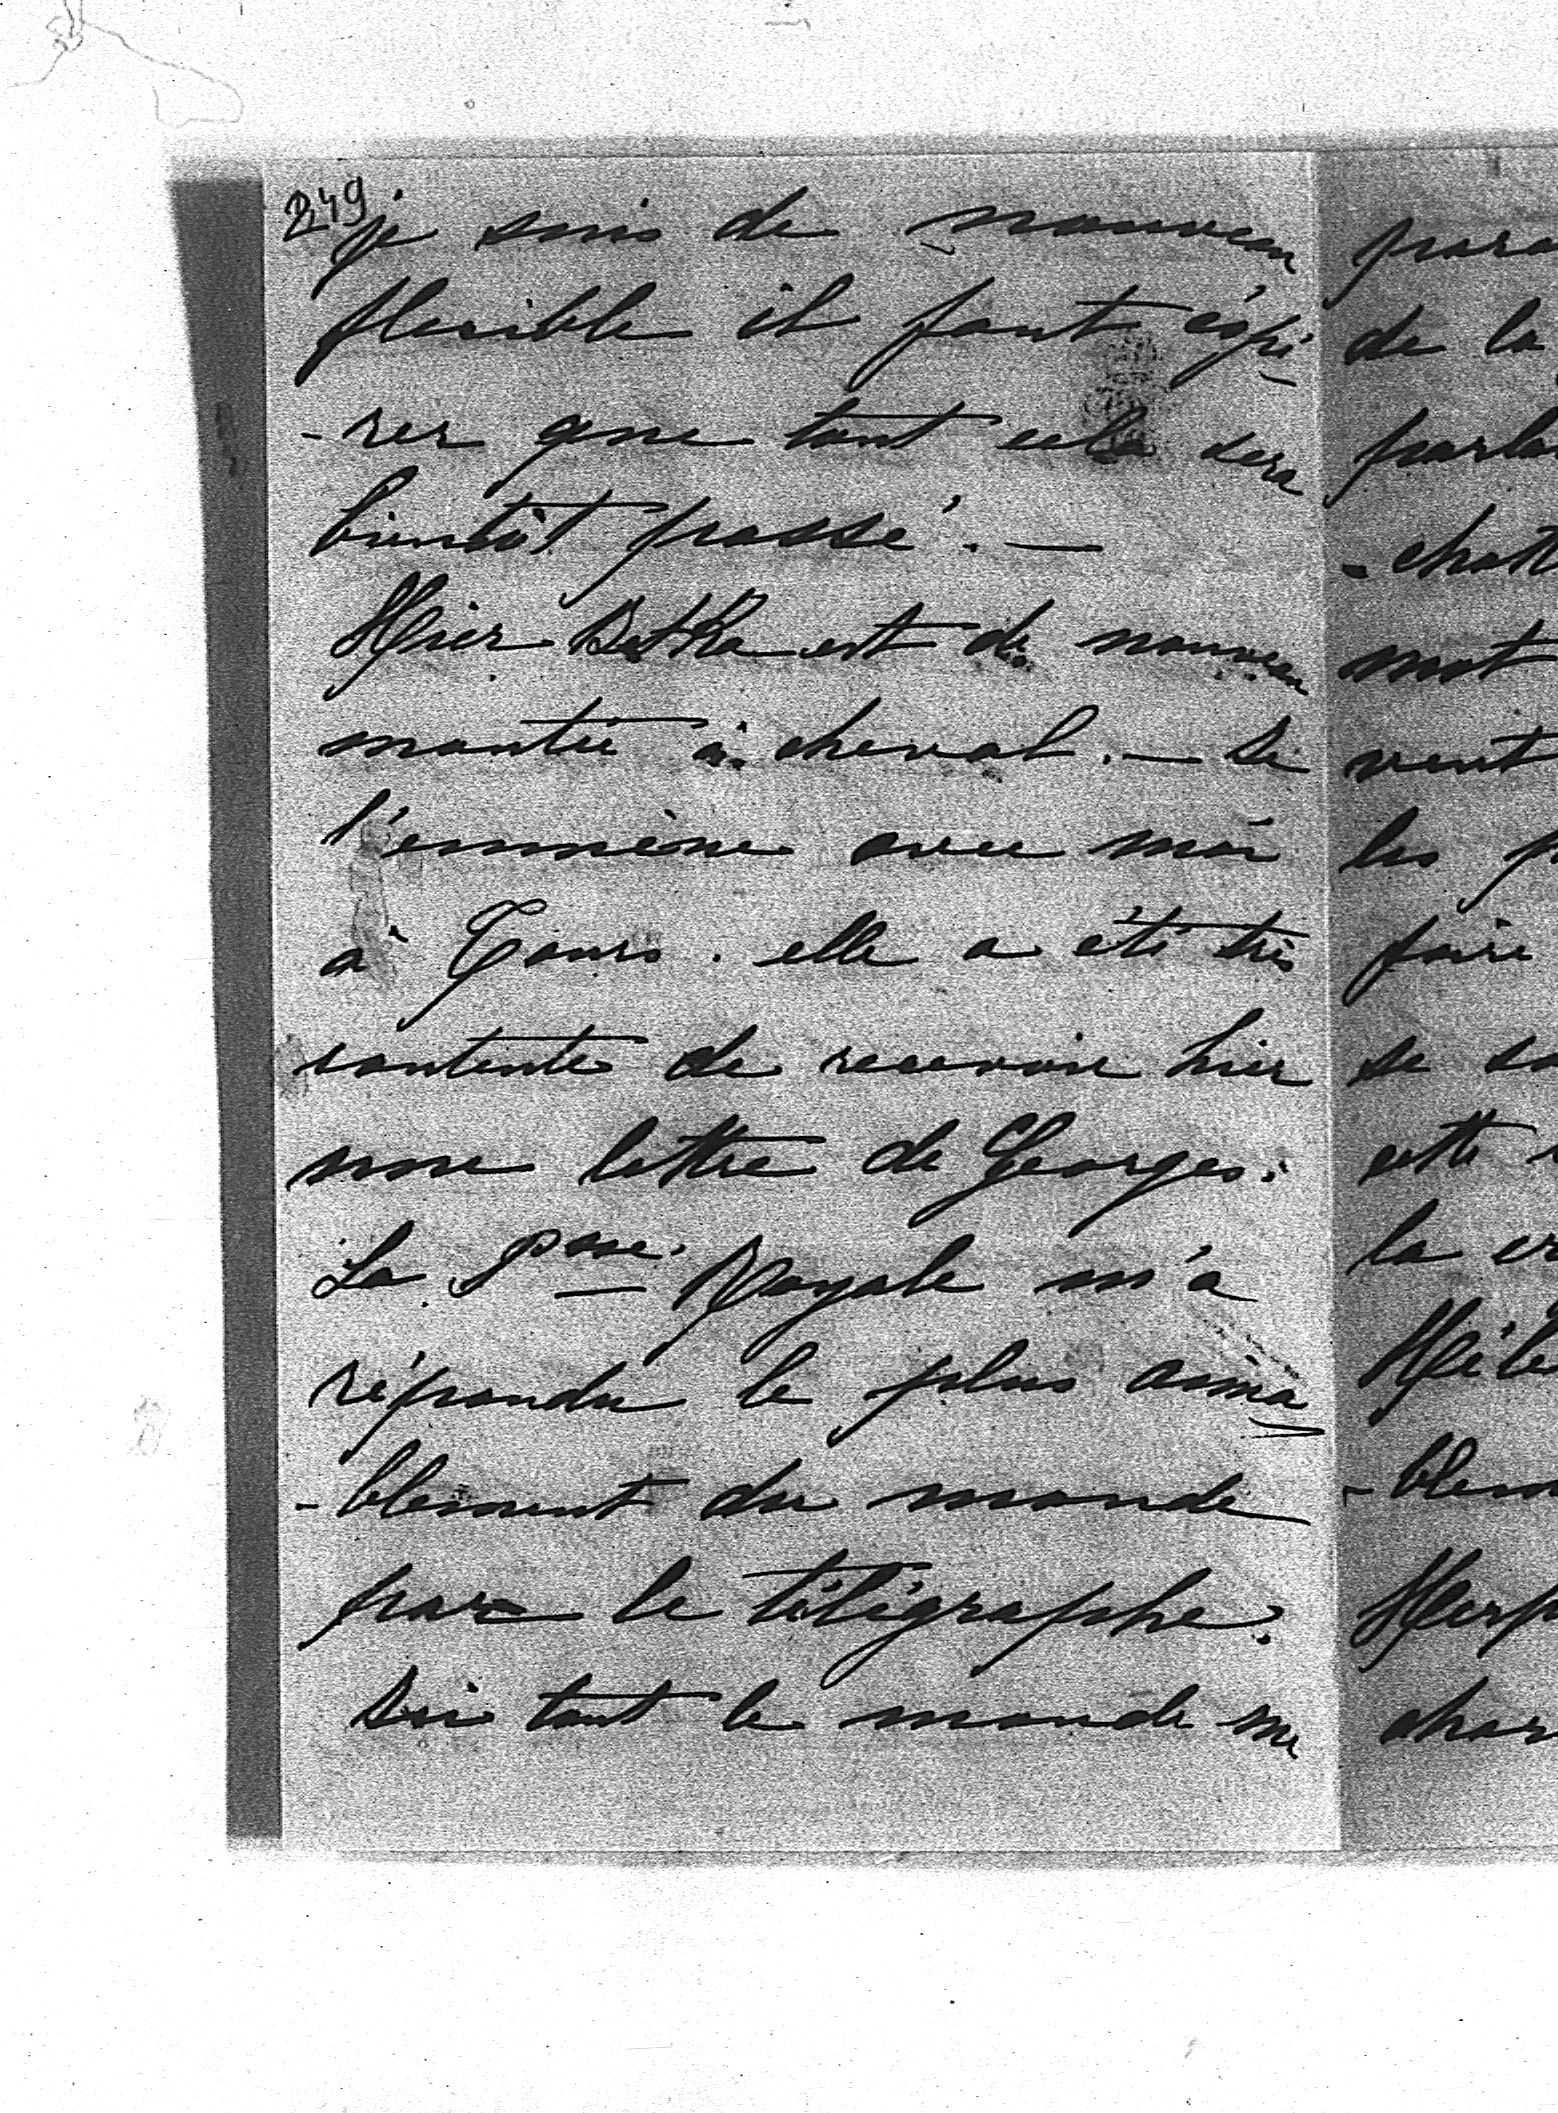 249
je suis de nouveau
flexible il faut éspé
-rer que tout cela sera
bientôt passé. —
Hier Betka est de nouveau
montée à cheval. — Je
l'emmène avec moi
à Tours. elle a été très
contente de recevoir hier
une lettre de Georges.
La Psse. Royale m'a
répondu le plus aima
-blement du monde
par le télégraphe.
Ici tout le monde me
para
de la
parla
-chat
mot
vent
les p
faire
se so
cette
la
Hélè
-blem
char